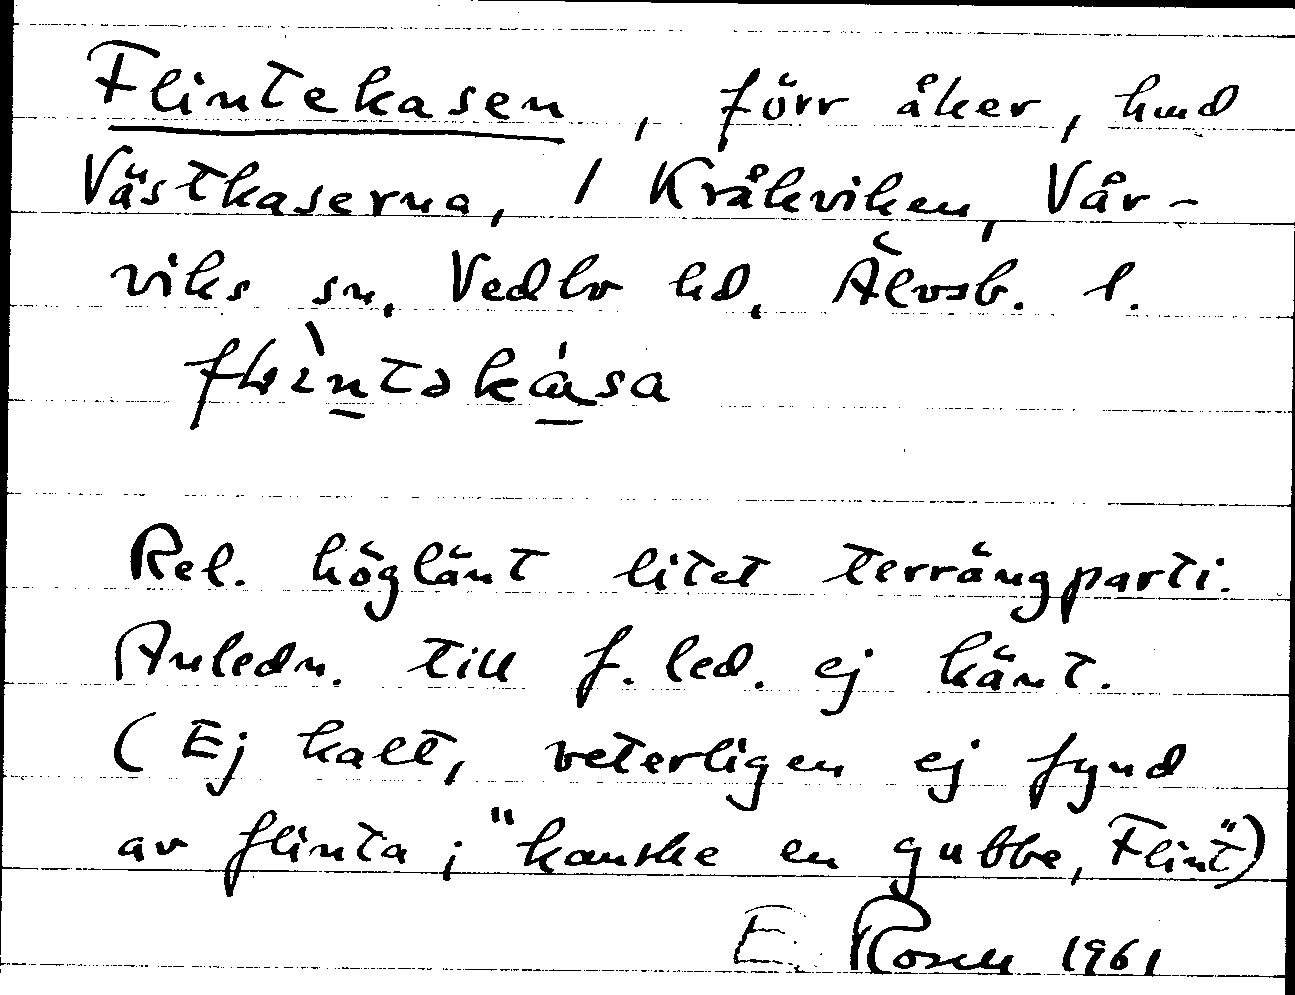 Flintekasen, förr åker, hmd
Västkaserna, 1 Kråkviken, Vår-
viks sn, Vedbo hd, Älvsb. l.
Rel. höglänt litet terrängparti.
Anledn. till f. led. ej känt.
(Ej kallt, veterligen ej fynd
av flinta; "kanske en gubbe, Flint")
E. Rosell 1961